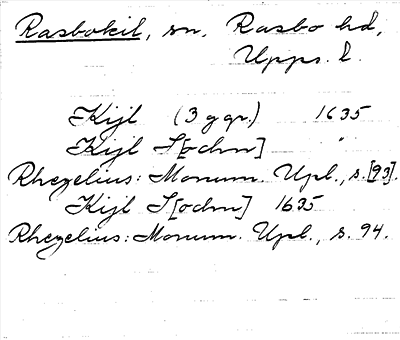 Rasbokil, sn. Rasbo hd,
Upps. l.
Kijl (3 ggr.) 1635
Kijl S[ochn] "
Rhezelius: Monum. Upl., s. [93].
Kijl S[ochn] 1635
Rhezelius: Monum. Upl., s. 94.